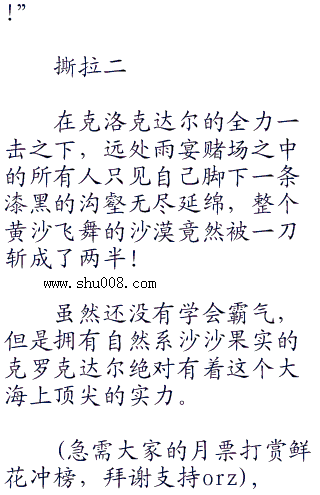 !”
撕拉二
在克洛克达尔的全力一
击之下，远处雨宴赌场之中
的所有人只见自己脚下一条
漆黑的沟壑无尽延绵，整个
黄沙飞舞的沙漠竟然被一刀
斩成了两半！
www.shu008.com
虽然还没有学会霸气，
但是拥有自然系沙沙果实的
克罗克达尔绝对有着这个大
海上顶尖的实力。
(急需大家的月票打赏鲜
花冲榜，拜谢支持orz)，